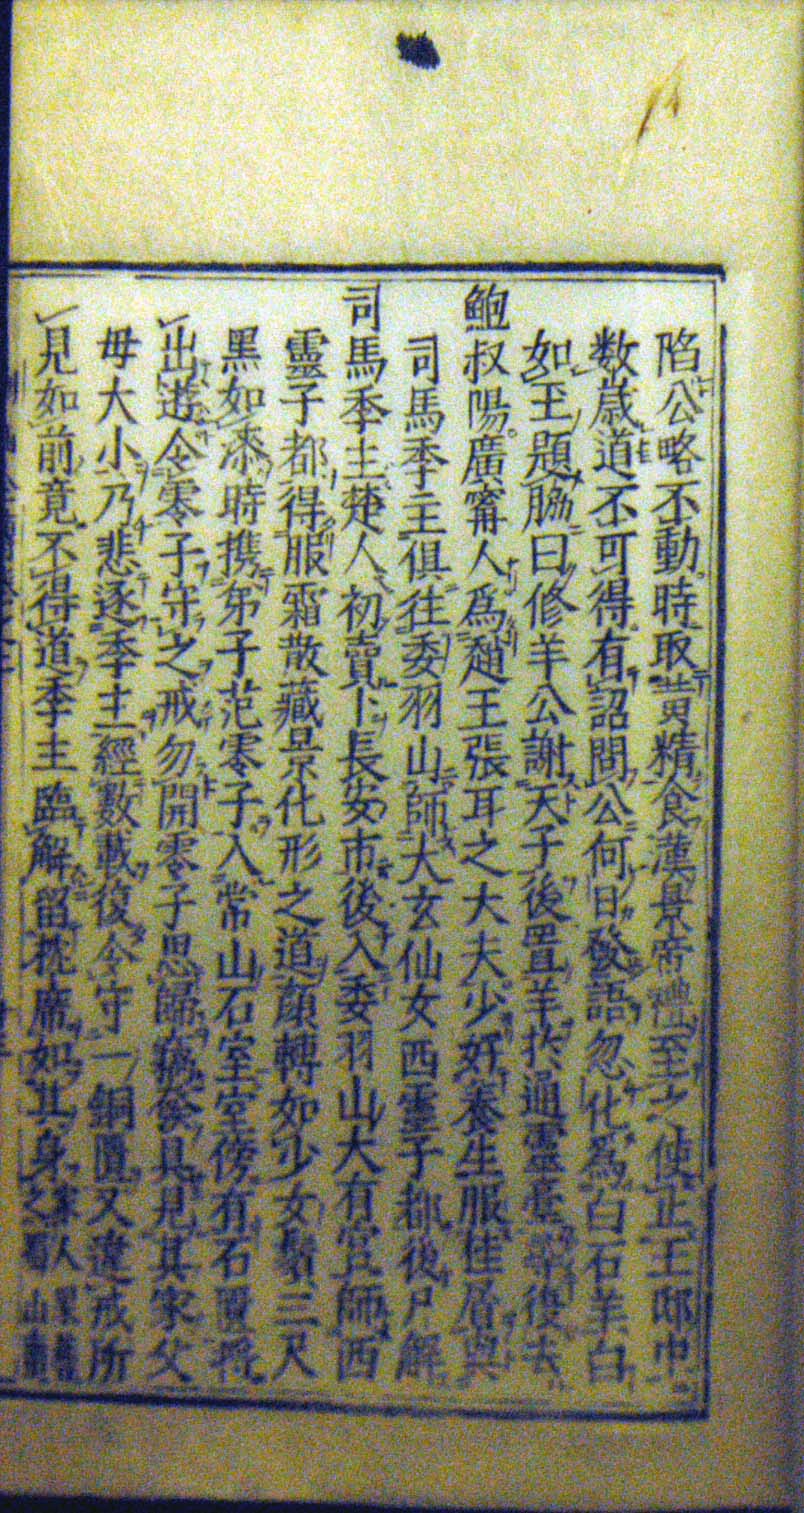 陷公略不動時取黄精食漢景帝禮至之使止王邸中
数歳道不可得有詔問公何日發語忽化爲白石羊白
如玉題脇曰修羊公謝天子後置羊於通靈臺 復去
鮑叔陽廣甯人爲趙王張耳之大夫少好養生服桂屑與
司馬季主俱往委羽山師大玄仙女西靈子都後尸解
司馬季主楚人初賣卜長安市後入委羽山大有宮師西
靈子都得服霜散藏景化形之道顔轉如少女鬚三尺
黒如漆時携弟子范零子入常山石室室傍有石匱
出遊令零子守之戒勿開零子思歸竊 具見其家父
母大小乃悲逐季主經數載復令守一銅匱又違戒所
見如前竟不得道季主臨解留枕席如其身